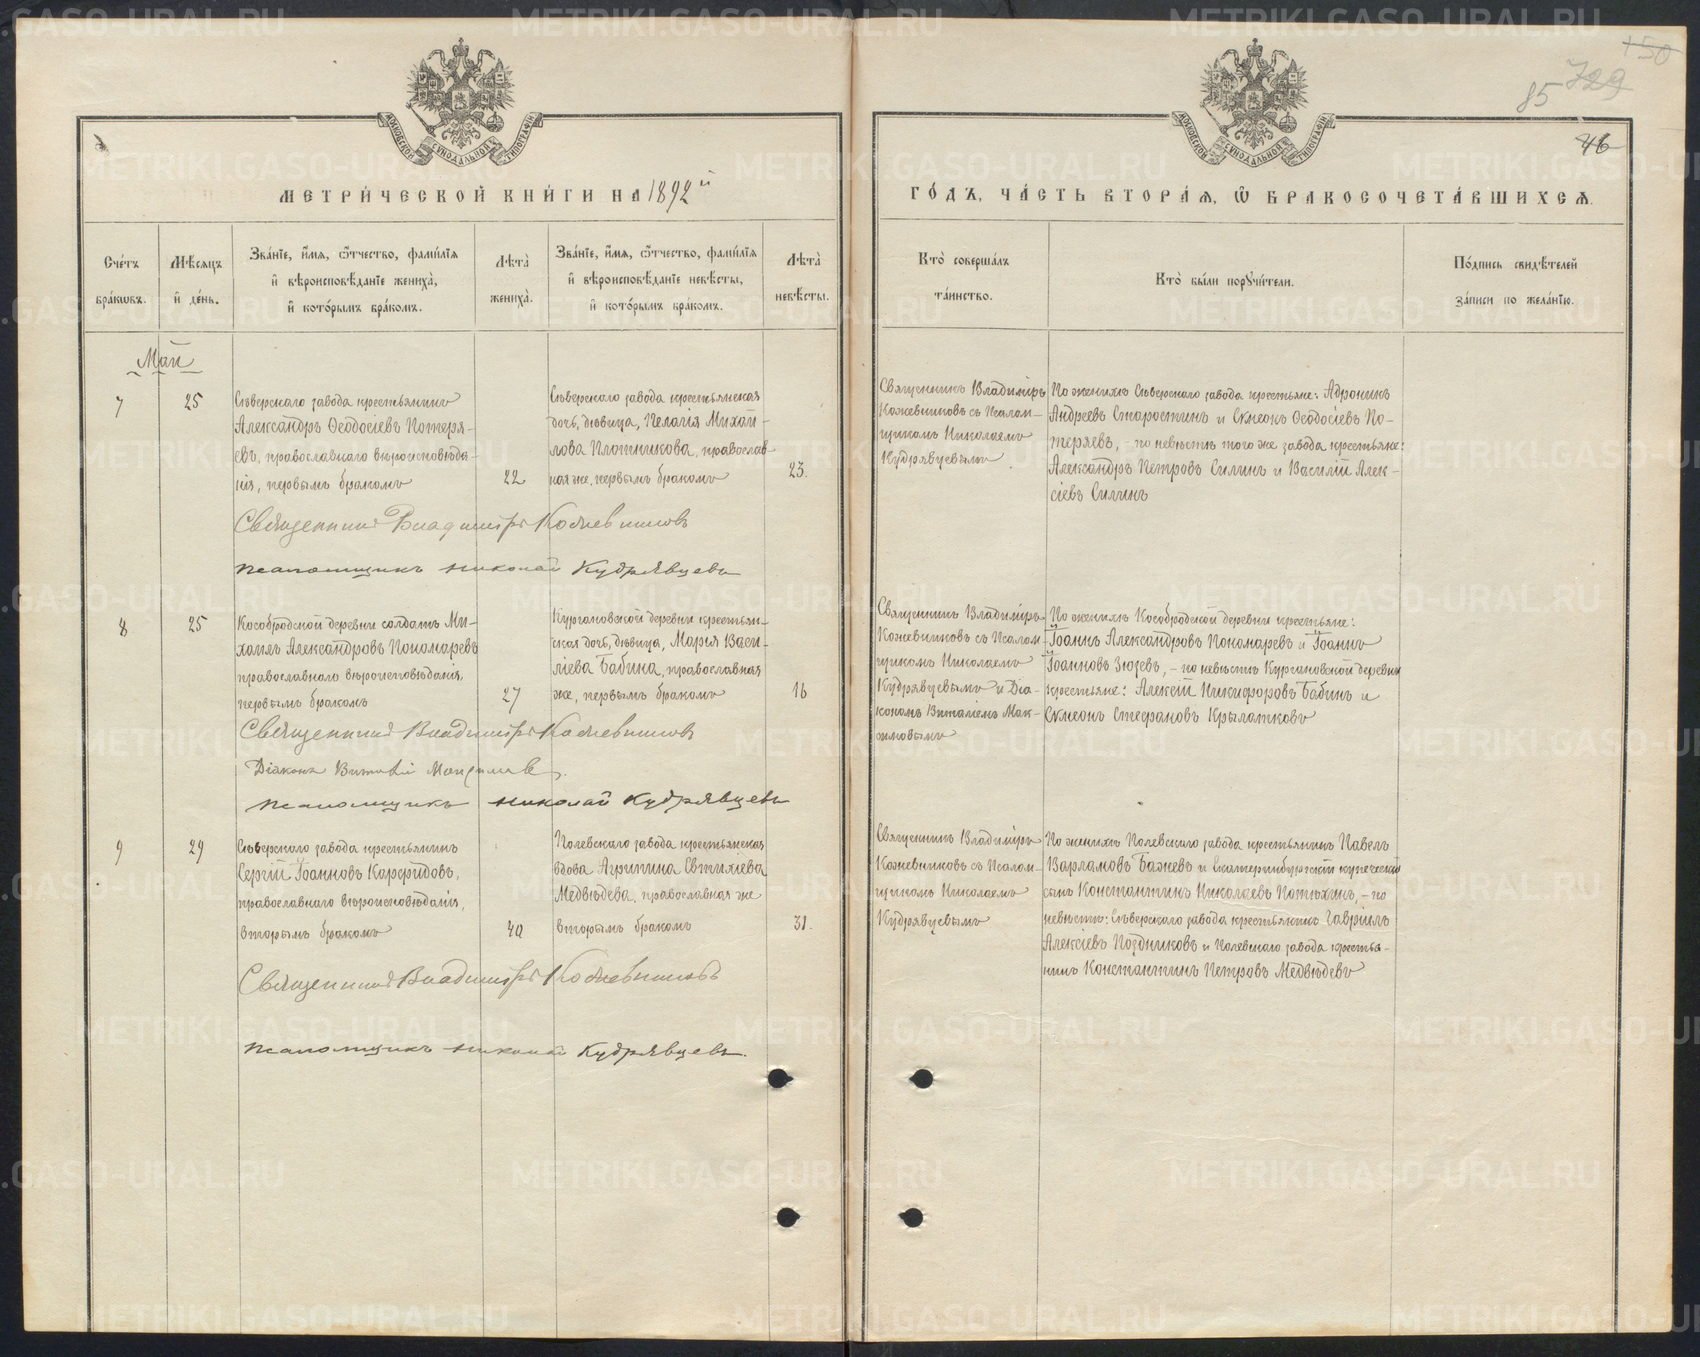 150
729
85
46
МОСКОВСКОЙ СѴНОДАЛЬНОЙ ТИПОГРАФІИ
МОСКОВСКОЙ СѴНОДАЛЬНОЙ ТИПОГРАФІИ
МЕТРИ́ЧЕСКОЙ КНИ́ГИ НА 1892й
ГО́ДЪ, ЧА́СТЬ ВТОРА́Я, Ѡ҆ БРАКОСОЧЕТА́ВШИХСЯ.
Сче́тъ
бра́кѡвъ.
Мѣ́сяцъ
и҆ де́нь.
Зва́нїе, и҆́мя, ѻ҆́тчество, фами́лїя
и҆ вѣроисповѣ́данїе жениха̀,
и҆ кото́рымъ бра́комъ.
Лѣ́та̀
жениха̀.
Зва́нїе, и҆́мя, ѻ҆́тчество, фами́лїя
и҆ вѣроисповѣ́данїе невѣ́сты,
и҆ кото́рымъ бра́комъ.
Лѣ́та̀
невѣ́сты.
Кто̀ соверша́лъ
та́инство.
Кто̀ бы́ли порꙋчи́тели.
По́дпись свидѣ́телей
за́писи по жела́нїю.
Май
7
25
Сѣверскаго завода крестьянинъ
Александръ Ѳеодосіевъ Потеря-
евъ, православнаго вѣроисповѣда-
нія, первымъ бракомъ
22
Сѣверскаго завода крестьянская
дочь, дѣвица, Пелагія Михай-
лова Плотникова, православ-
ная же, первымъ бракомъ
23.
Священникъ Владиміръ
Кожевниковъ съ Псалом-
щикомъ Николаемъ
Кудрявцевымъ
По женихѣ Сѣверскаго завода крестьяне: Адроникъ
Андреевъ Старостинъ и Сѵмеонъ Ѳеодосіевъ По-
теряевъ, - по невѣстѣ того же завода крестьяне:
Александръ Петровъ Силинъ и Василій Алек-
сіевъ Силинъ
Священникъ Владиміръ Кожевниковъ
Псаломщикъ Николай Кудрявцевъ
8
25
Кособродской деревни солдатъ Ми-
хаилъ Александровъ Пономаревъ
православнаго вѣроисповѣданія,
первымъ бракомъ
27
Кургановской деревни крестьян-
ская дочь, дѣвица, Марья Васи-
ліева Бабина, православная
же, первымъ бракомъ
16
Священникъ Владиміръ
Кожевниковъ съ Псалом-
щикомъ Николаемъ
Кудрявцевымъ и Діа-
кономъ Виталіемъ Мак-
симовымъ
По женихѣ Кособродской деревни крестьяне:
Іоаннъ Александровъ Пономаревъ и Іоаннъ
Іоанновъ Зюзевъ, - по невѣстѣ Кургановской деревни
крестьяне: Алексій Никифоровъ Бабинъ и
Сѵмеонъ Стефановъ Крылатковъ
Священникъ Владиміръ Кожевниковъ
Діаконъ Виталій Максимовъ.
Псаломщикъ Николай Кудрявцевъ
9
29
Сѣверскаго завода крестьянинъ
Сергій Іоанновъ Карфидовъ,
православнаго вѣроисповѣданія,
вторымъ бракомъ
40
Полевскаго завода крестьянская
вдова Агрипина Евтихіева
Медвѣдева, православная же
вторымъ бракомъ
31.
Священникъ Владиміръ
Кожевниковъ съ Псалом-
щикомъ Николаемъ
Кудрявцевымъ
По женихѣ Полевскаго завода крестьянинъ Павелъ
Варламовъ Бажевъ и Екатеринбургскій купеческій
сынъ Константинъ Николаевъ Потѣхинъ, - по
невѣстѣ: Сѣверскаго завода крестьянинъ Гавріилъ
Алексіевъ Поздниковъ и Полевскаго завода крестья-
нинъ Константинъ Петровъ Медвѣдевъ
Священникъ Владиміръ Кожевниковъ
Псаломщикъ Николай Кудрявцевъ.
METRIKI.GASO-URAL.RU